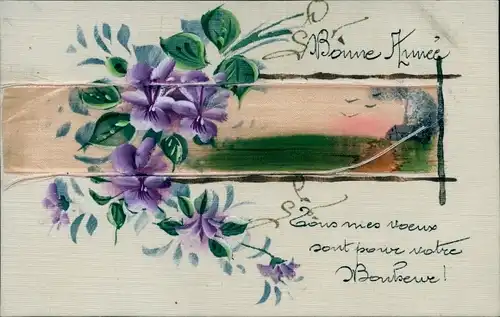 Bonne Année
Tous mes voeux
sont pour votre
Bonheur!